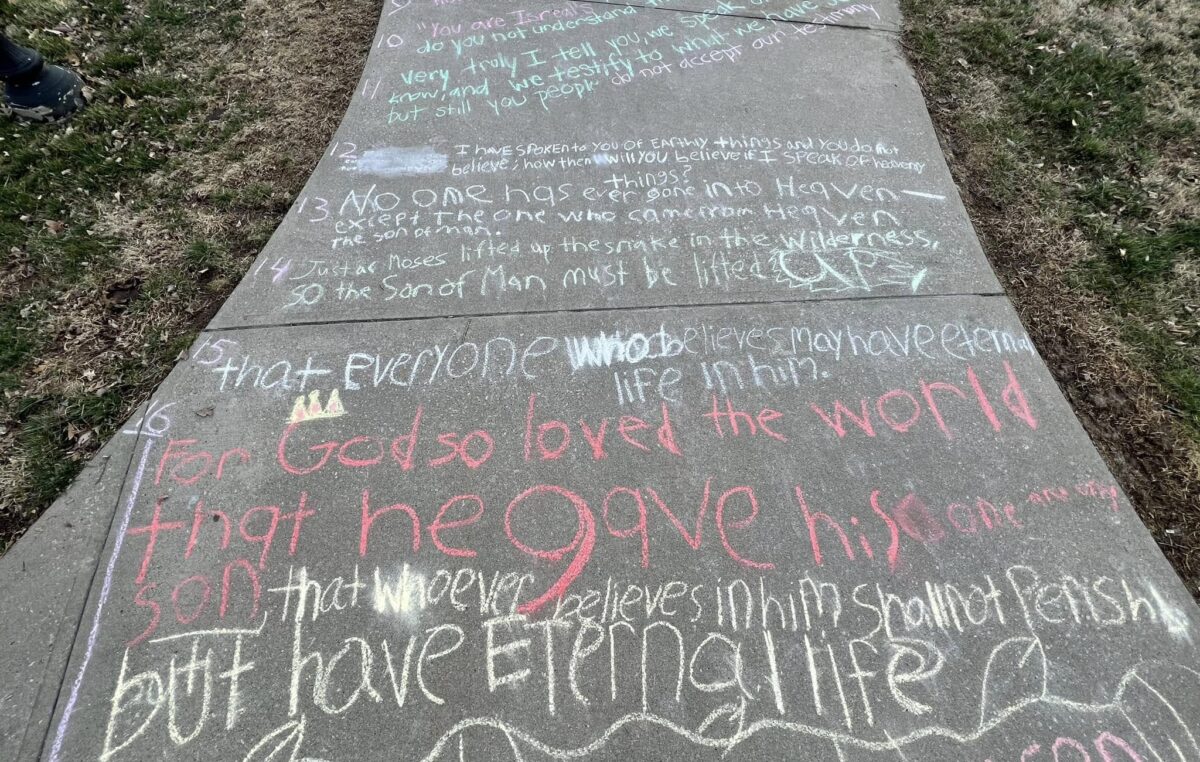 10 "You are Israel's
do you not understand
11 very truly I tell you, we speak
know, and we testify to what we have
but still you people do not accept our testimony
12 I HAVE SPOKEN to YOU OF EARTHLY things and you do not
believe; how then will you believe if I SPEAK OF heavenly
things?
13 No one has ever gone into Heaven—
except The one who came from Heaven
The son of man.
14 Just as Moses lifted up the snake in the Wilderness,
so the Son of Man must be lifted UP
15 that Everyone who believes may have eternal
life in him.
16 For God so loved the world
that he gave his one and only
son that whoever believes in him shall not Perish
but have Eternal life
son